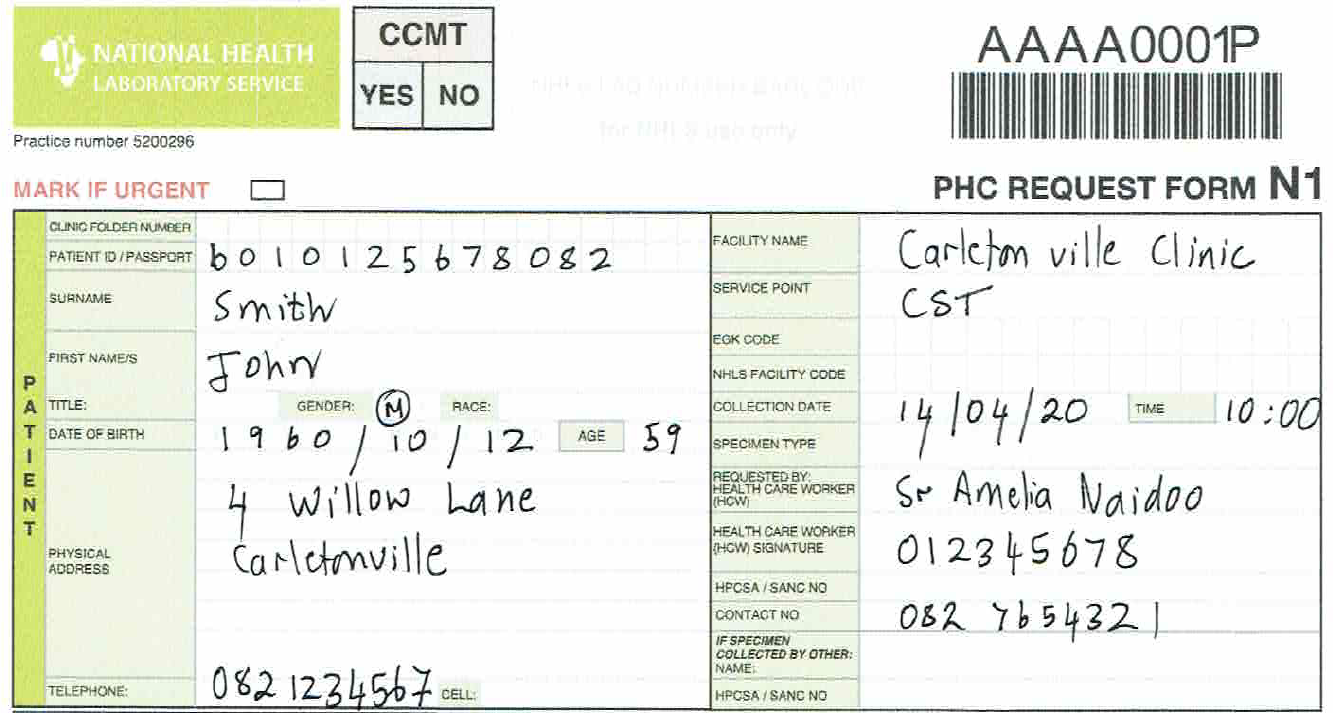 NATIONAL HEALTH
LABORATORY SERVICE
Practice number 5200296
CCMT
YES NO
AAAA0001P
MARK IF URGENT
PHC REQUEST FORM N1
PATIENT
CLINIC FOLDER NUMBER
PATIENT ID / PASSPORT 6010125678082
SURNAME Smith
FIRST NAME/S John
TITLE: GENDER: M RACE:
DATE OF BIRTH 1960/10/12 AGE 59
PHYSICAL ADDRESS 4 Willow Lane
Carletonville
TELEPHONE: 0821234567 CELL:
FACILITY NAME Carletonville Clinic
SERVICE POINT CST
EGK CODE
NHLS FACILITY CODE
COLLECTION DATE 14/04/20 TIME 10:00
SPECIMEN TYPE
REQUESTED BY:
HEALTH CARE WORKER
(HCW) Sr Amelia Naidoo
HEALTH CARE WORKER
(HCW) SIGNATURE 012345678
HPCSA / SANC NO
CONTACT NO 082 7654321
IF SPECIMEN
COLLECTED BY OTHER:
NAME:
HPCSA / SANC NO